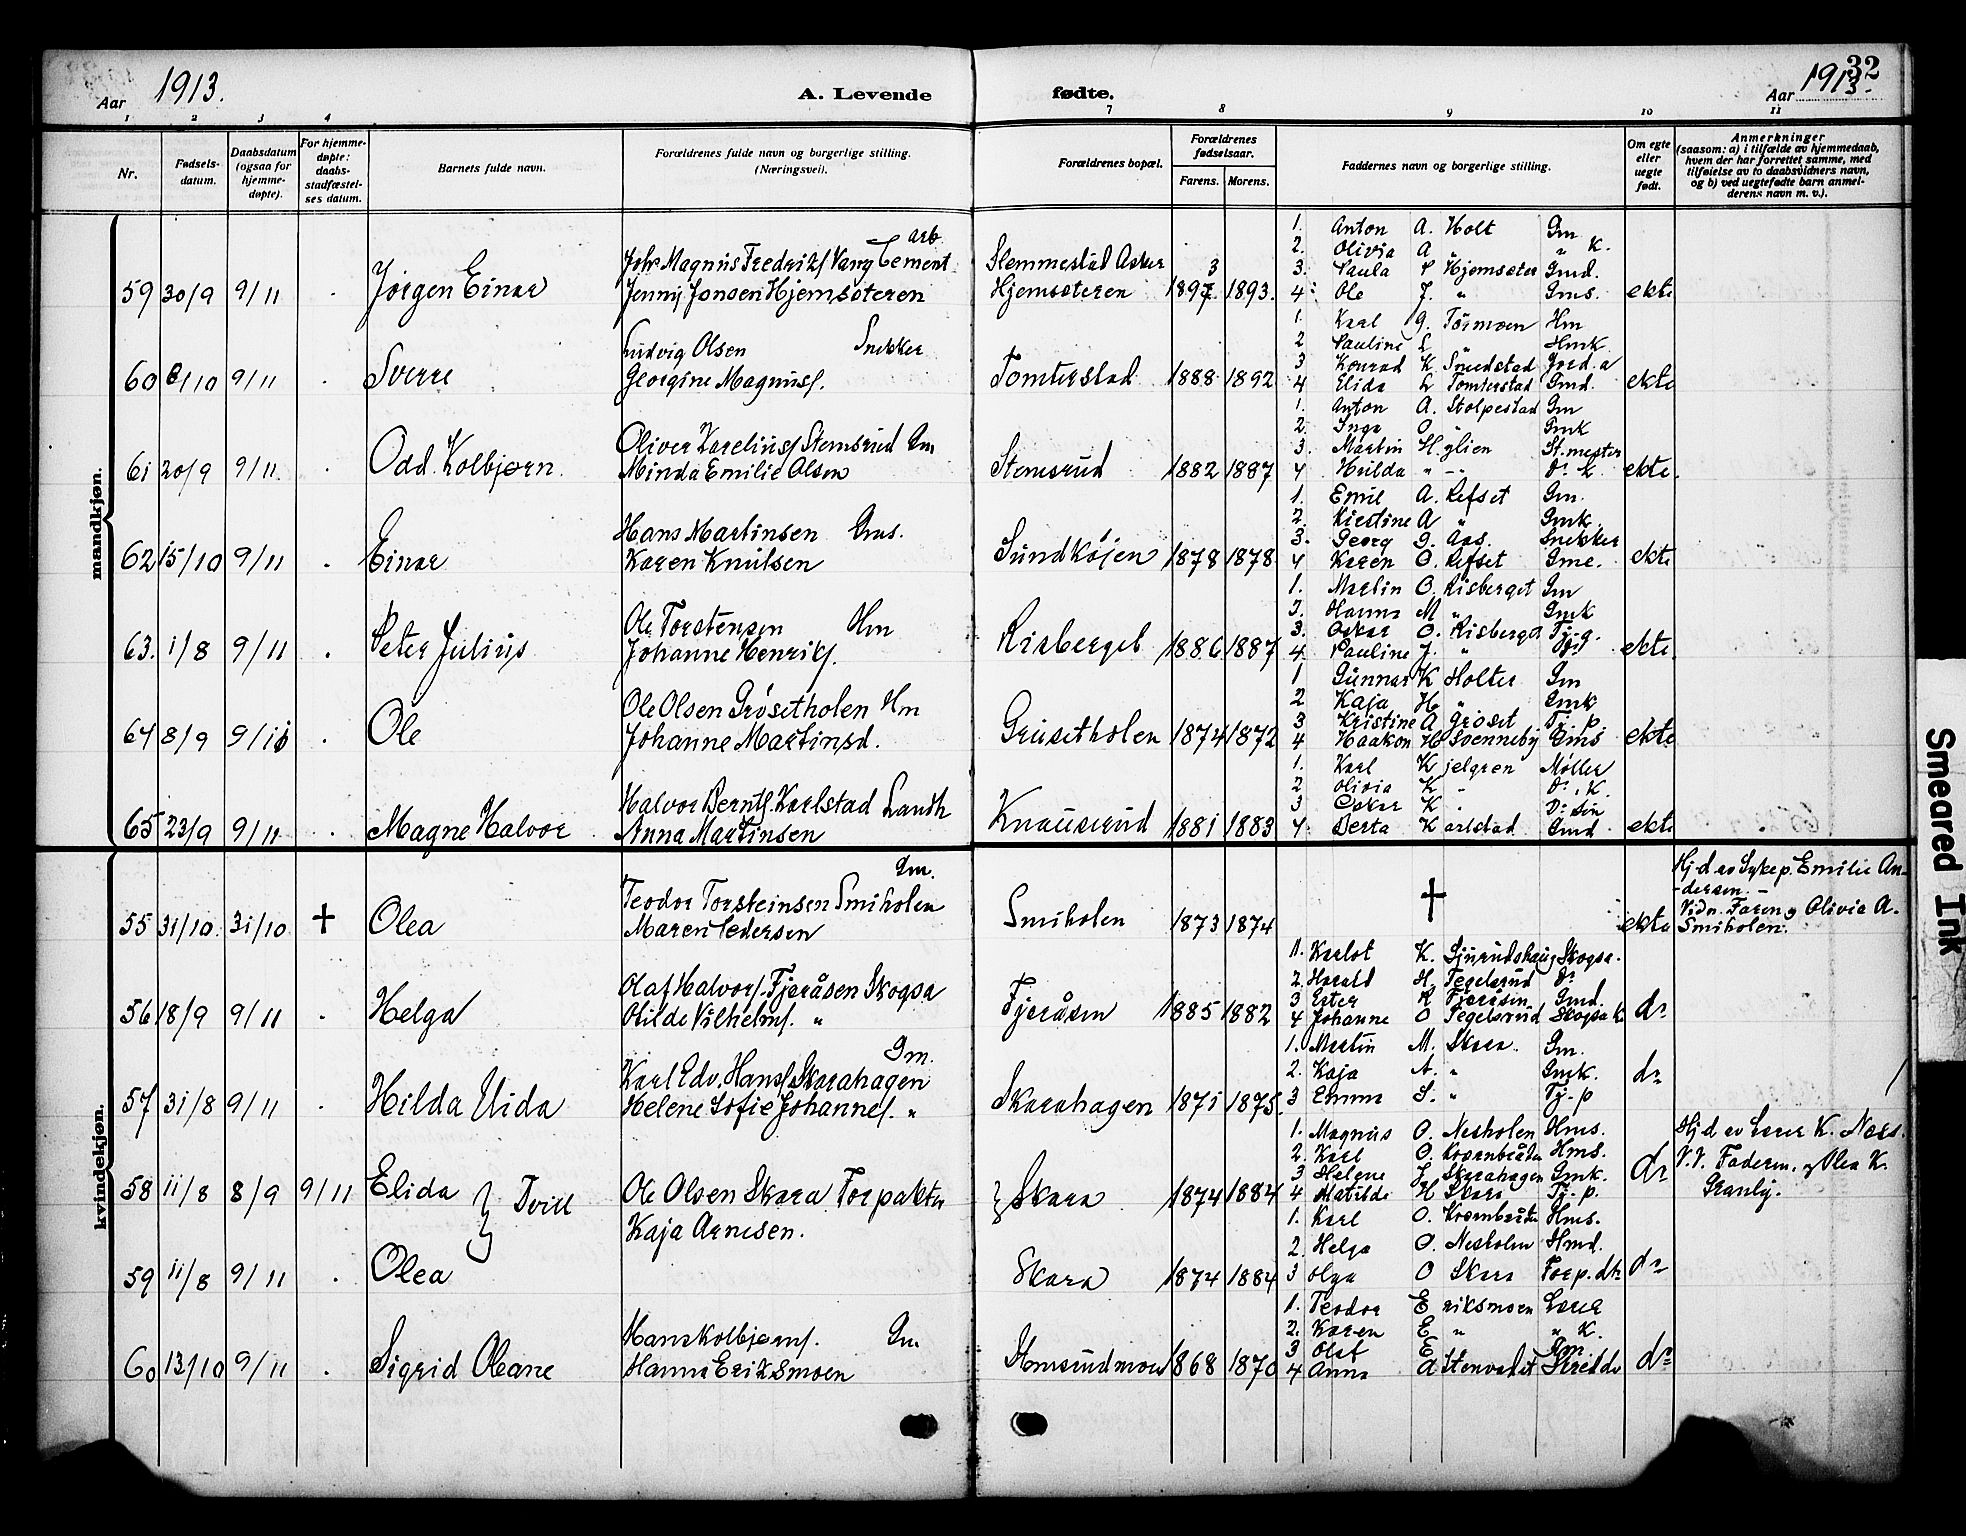 32
Aar 1913. A. Levende fødte. Aar 1913.
1 2 3 4 7 8 9 10 11
Nr.
Fødsels-
datum.
Daabsdatum
(ogsaa for
hjemme-
døpte).
For hjemme-
døpte:
daabs-
stadfæstel-
ses datum.
Barnets fulde navn.
Forældrenes fulde navn og borgerlige stilling.
(Næringsvei).
Forældrenes bopæl.
Forældrenes
fødselsaar.
Farens. Morens.
Faddernes navn og borgerlige stilling.
Om egte
eller
uegte
født.
Anmerkninger
(saasom: a) i tilfælde av hjemmedaab,
hvem der har forrettet samme, med
tilføielse av to daabsvidners navn,
og b) ved uegtefødte barn anmel-
derens navn m. v.).
mandkjøn.
59 30/9 9/11 . Jørgen Einar
arb.
Johs Magnus Fredriks. Vang Cement
Jenny Jonsen Hjemsæteren
Slemmestad Asker
Hjemsæteren 1893 1893.
1. Anton A. Holt Gm
2. Olivia A " " K.
3. Paula P Hjemsæter Gmd.
4. Ole J. " Gms. ekte
60 6/10 9/11 . Sverre
Ludvig Olsen Snekker
Georgine Magnuss.
Tomterstad 1888 1892
1. Karl G. Tørmoen Hm
2 Pauline L " Hmk
3 Konrad K Smedstad Jord.a
4 Elida L Tomterstad Gmd. ekte
61 20/9 9/11 . Odd Kolbjørn.
Oliver Kareliuss Stemsrud Gm
Minda Emilie Olsen
Stemsrud 1882 1887
1. Anton A. Stolpestad Gm
2. Inga O " Gmk
3. Martin Hylien St.mester
4 Hulda " -"- Do K. ekte.
62 15/10 9/11 . Einar
Hans Martinsen Gms.
Karen Knutsen
Sundkøien 1878 1878
1. Emil A. Refset Gm.
2. Kirstine A " Gmk.
3. Georg G. Aas. Snekker
4 Karen O. Refset Gme. ekte
63. 1/8 9/11 . Peter Julius
Ole Torstensen Hm
Johanne Henriks.
Risberget 1886 1887
1. Martin O. Risberget Gm
2. Hanna M " Gmk
3. Oskar O. Risberget Tj.g.
4. Pauline J. " ekte.
64 8/9 9/11 . Ole
Ole Olsen Grøsetholen Hm
Johanne Martinsd.
Grusetholen 1874 1872
1 Gunnar K Holter Gm
2 Kaja H " Gmk
3 Kristine A Grøset Tj. p.
4 Haakon H Svenneby Gms ekte
65 23/9 9/11 . Magne Halvor
Halvor Bernts. Karlstad Landh
Anna Martinsen
Knausrud 1881 1883
1. Karl Kjelgren Møller
2 Olivia K " Do. K.
3 Oskar K . Do Søn
4. Berta Karlstad Gmd ekte
kvindekjøn.
55 31/10 31/10 † Olea
Gm.
Teodor Torsteinsen Smiholen
Maren Pedersen
Smiholen 1873 1874 † ekte
Hj.d av Sykep. Emilie An-
-dersen. -
Vidn. Faren og Olivia A.
Smiholen.
56 18/9 9/11 . Helga
Olaf Halvors. Fjeråsen Skogsa
Otilde Vilhelms. "
Fjeråsen 1885 1882
1. Karlot K. Sjurudshaug Skogsa.
2 Harald H. Tegelsrud Do
3 Ester K Fjeråsen Gmd.
4 Johanne O Tegelsrud Skogsa K. do
57 31/8 9/11 . Hilda Uida
Gm.
Karl Edv. Hans. Skarahagen
Helene Sofie Johannes. "
Skarahagen 1871 1875.
1. Martin M. Skara Gm.
2. Kaja A. " Gmk.
3 Emma S. " Tj. p do
58 11/8 8/9 9/11 Elida } Tvill
Ole Olsen Skara Forpakter
Kaja Arnesen.
Skara 1874 1884
1. Magnus O. Nesholen Hms.
2. Karl O. Kvernbråten Hms.
3 Helene J. Skarahagen Gmk.
4 Matilde H Skara Tj. p. do
Hj d av Lærer K. Næss.
V.V. Faderen, og Olea K.
Granly.
59 11/8 9/11 . Olea
Skara 1874 1884
1. Karl O. Kvernbråte Hms.
2. Helga O. Nesholen Hmd.
3 Olga O Skara Forp. dtr do
60 13/10 9/11 . Sigrid Oleane
Hans Kolbjørns. Gm
Hanna Eriksmoen
Stemsrudmoen 1868 1870
1. Teodor Eriksmoen Lærer
2. Karen E " " K.
3 Olaf E Gm
4 Anna A Stenvadet do
Smeared Ink